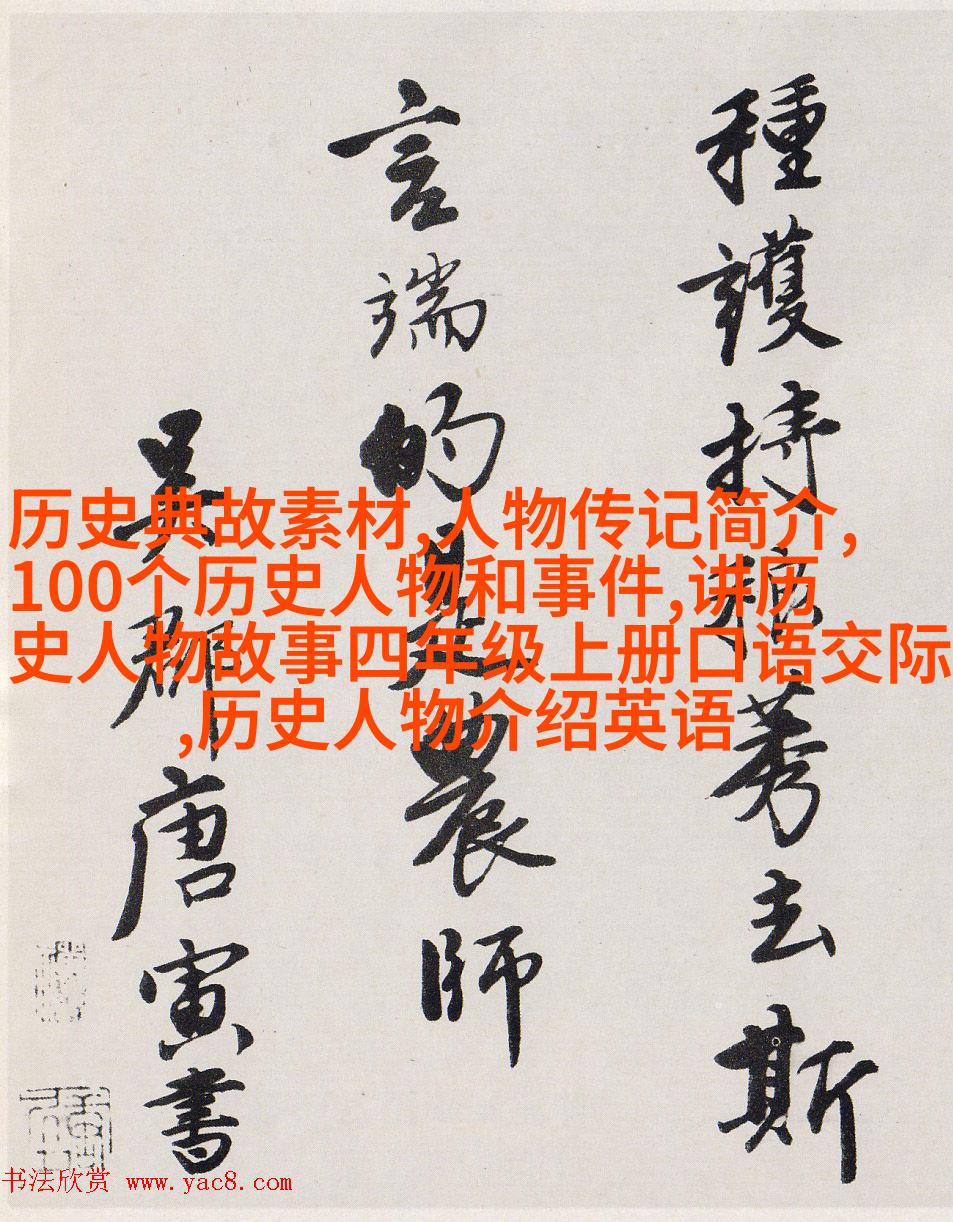 種護持稂莠去斯
言端的是農師
吳郡唐寅書
历史典故素材,人物传记简介,
100个历史人物和事件,讲历
史人物故事四年级上册口语交际
,历史人物介绍英语
书法欣赏 www.yac8.com